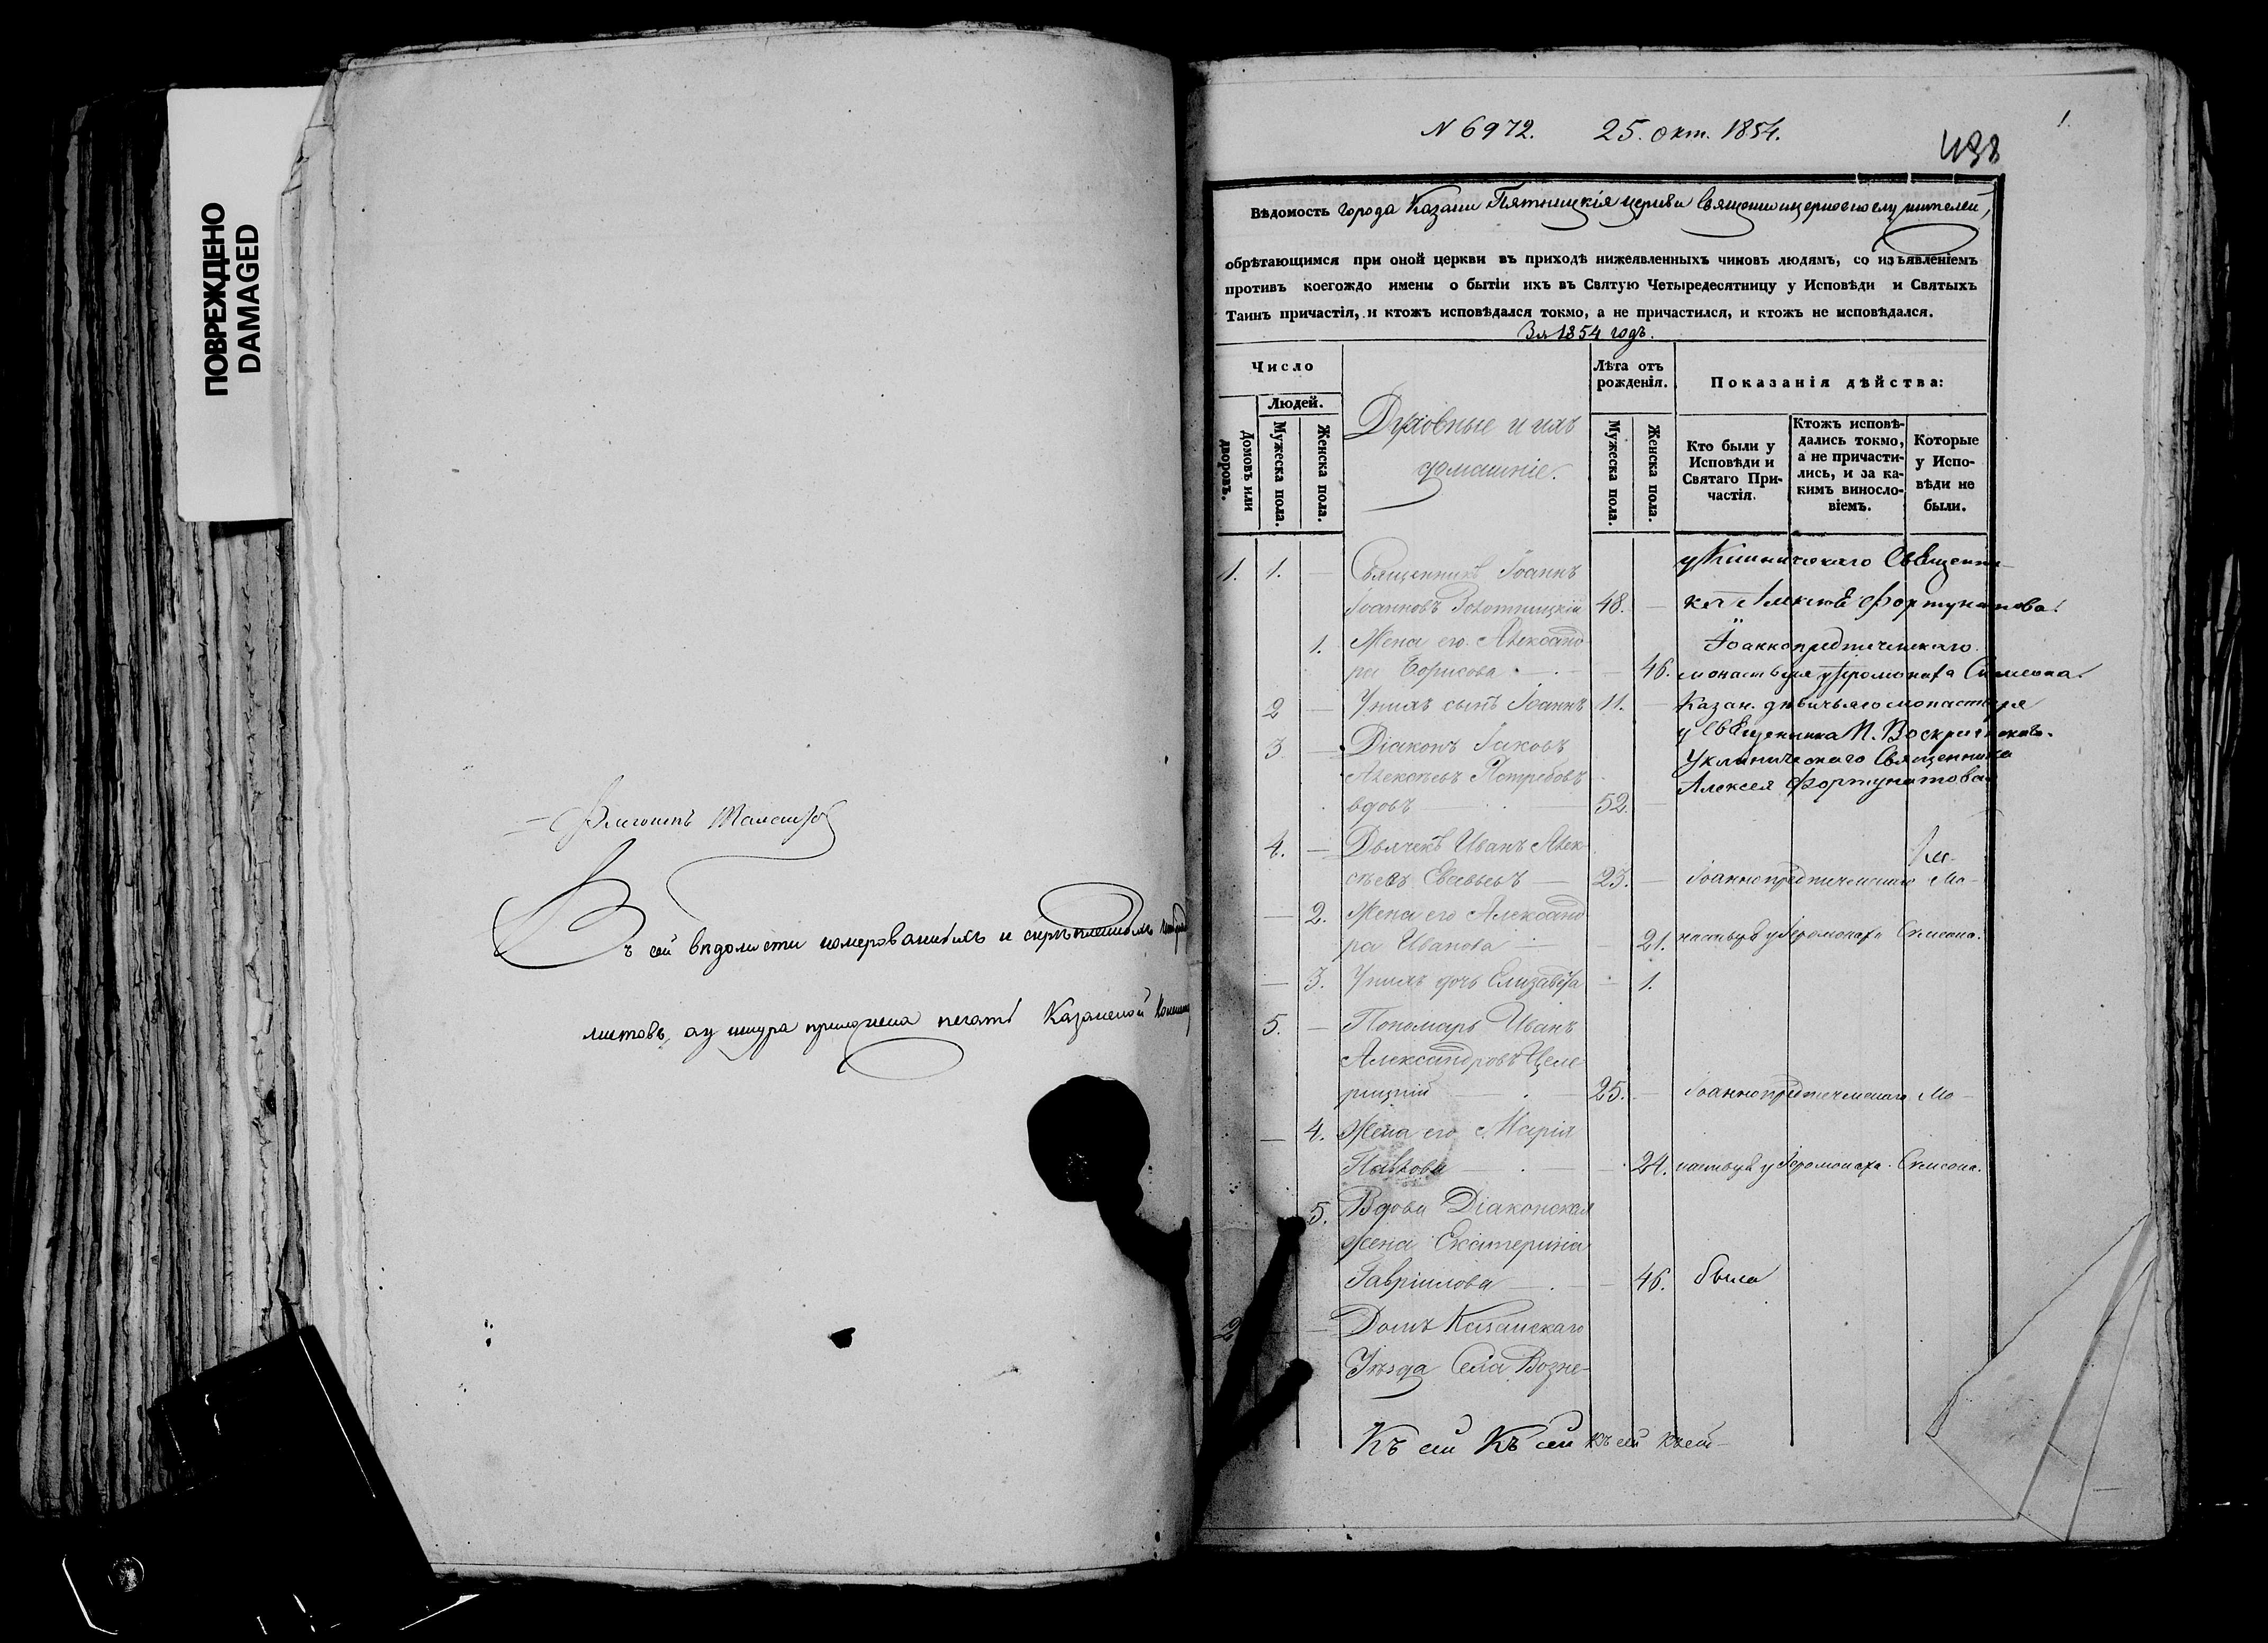 ПОВРЕЖДЕНО
DAMAGED
Въ сей вѣдомости номерованныхъ и скрѣпленныхъ
листовъ, а у шнура приложена печать Казанской
N 6972. 25. окт. 1854.
1.
438
Вѣдомость города Казани Пятницкія церкви священноцерковнослужителей,
обрѣтающимся при оной церкви въ приходѣ нижеявленныхъ чиновъ людямъ, со изъявленіемъ
противъ коегождо имени о бытіи ихъ въ Святую Четыредесятницу у Исповѣди и Святыхъ
Таинъ причастія, и ктожъ исповѣдался токмо, а не причастился, и ктожъ не исповѣдался.
За 1854 годъ.
Число
Людей.
Домовъ или дворовъ.
Мужеска пола.
Женска пола.
Духовные и ихъ
домашніе.
Лѣта отъ
рожденія.
Мужеска пола.
Женска пола.
Показанія дѣйства:
Кто были у
Исповѣди и
Святаго При-
частія.
Ктожъ исповѣ-
дались токмо,
а не причасти-
лись, и за ка-
кимъ виносло-
віемъ.
Которые
у Испо-
вѣди не
были.
1. 1. — Священникъ Іоаннъ у Клиническаго Священни-
Іоанновъ Золотницкій 48. — ка Алексѣя Фортунатова.
1. Жена его Александ Іоаннопредтеченскаго
ра Борисова — 46. монастыря у Іеромонаха Симеона.
2 — У нихъ сынъ Іоаннъ 11. — Казан. дѣвичьяго монастыря
3 — Діаконъ Іаковъ у Священника Н. Воскресенскаго.
Алексѣевъ Потребовъ У клиническаго Священника
вдовъ 52. — Алексея Фортунатова
4. — Дьячекъ Иванъ Алек-
сѣевъ Евсевьевъ — 23. — Іоаннопредтеченскаго Мо-
— 2. Жена его Александ
ра Иванова — 21. настыря у Іеромонаха Симеона.
— 3. У нихъ дочь Елизавета — 1.
5. — Пономарь Иванъ
Александровъ Целе-
рицкій — 25. — Іоаннопредтеченскаго Мо-
— 4. Жена его Марія
Павлова — 24. настыря у Іеромонаха Симеона.
5. Вдова Діаконская
жена Екатерина
Гавріилова — 46. была
2 — Домъ Казанскаго
Уѣзда Села Возне-
Къ сей Къ сей Къ сей Къ сей